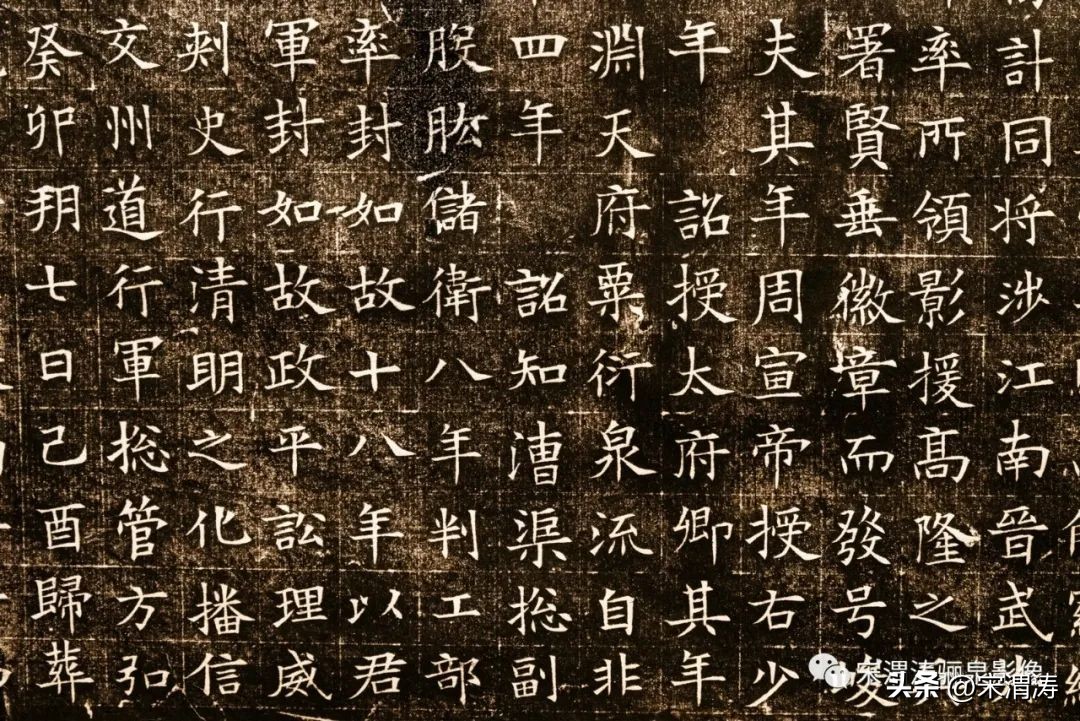 計同将涉江南晉武
率所領影援高隆之
署賢垂徽章而發号
夫其年周宣帝授右少
年 詔授太府卿其年
淵天府粟衍泉流自非
四年 詔知漕渠総副
股肱儲衛八年判工部
率封如故十八年以君
軍封如故政平訟理威
刺史行清明之化播信
文州道行軍総管方弘
癸卯朔七日己酉歸葬
宋渭涛骊泉影像
头条 @宋渭涛